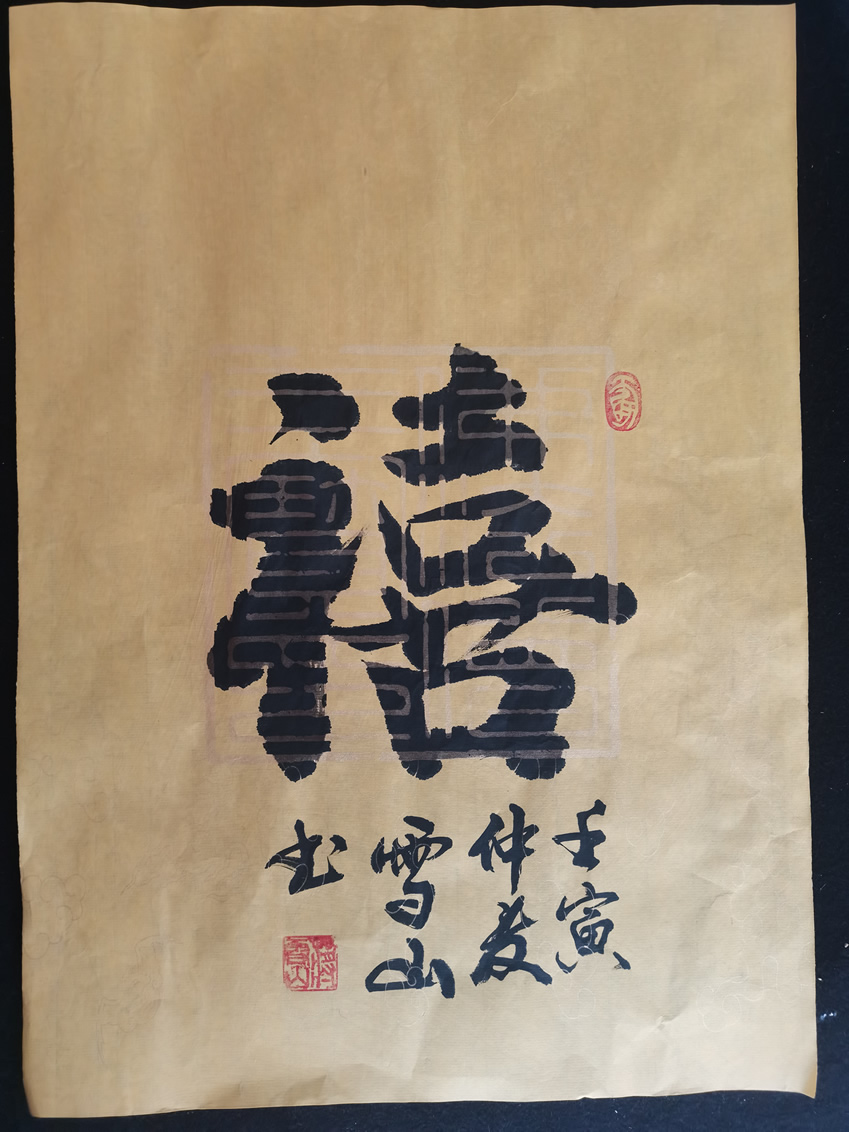 禧
壬寅
仲夏
雪山
书